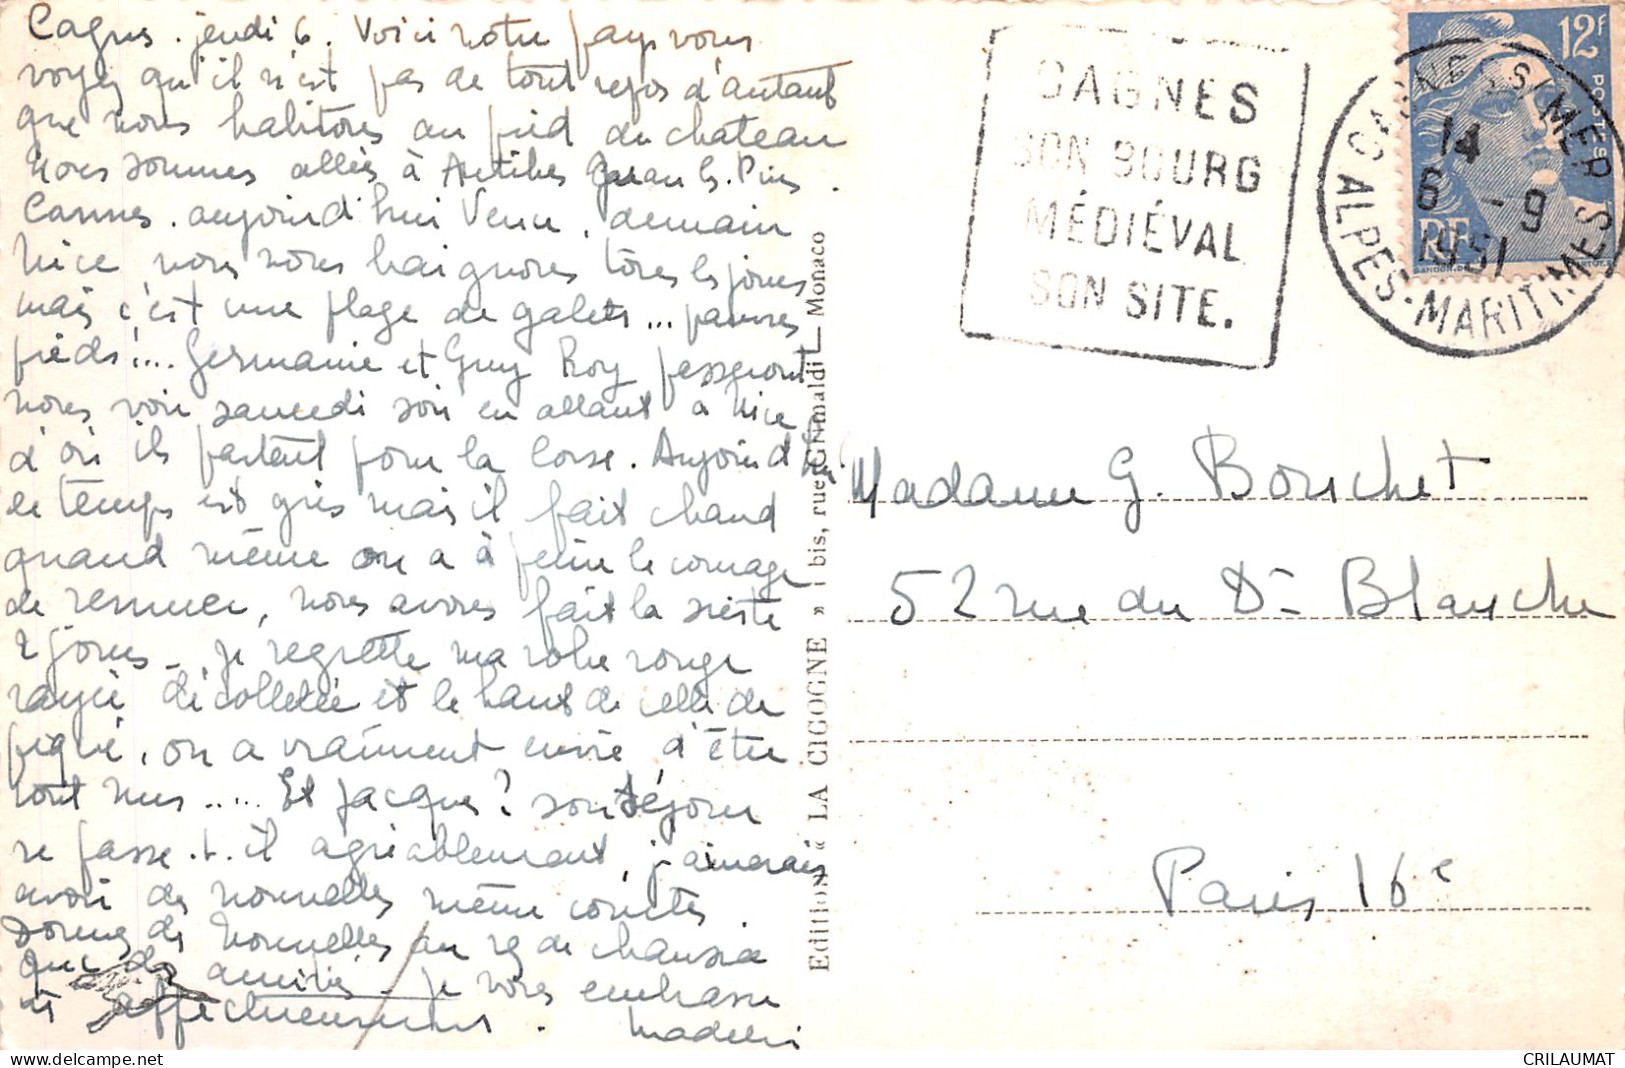 Cagnes. jeudi 6. Voici notre pays vous
voyez qu'il n'est pas de tout repos d'autant
que nous habitons au pied du chateau
Nous sommes allés à Antibes Juan les Pins.
Cannes. aujourd'hui Vence, demain
Nice, nous nous baignons tous les jours
mais c'est une plage de galets... pauvres
pieds!... Germaine et Guy Roy passeront
nous voir samedi soir en allant à Nice
d'où ils partent pour la Corse. Aujourd'hui
le temps est gris mais il fait chaud
quand même on a à peine le courage
de remuer, nous avons fait la sieste
2 jours - je regrette ma robe rouge
rayée décolletée et le haut de celle de
piqué, on a vraiment envie d'être
tout nus ..... Et Jacques? son séjour
se passe-t-il agréablement, j'aimerais
avoir des nouvelles même courtes.
Donnez des nouvelles au rez de chaussée
des amitiés - je vous embrasse
affectueusement. Madeleine
Edition « LA CIGOGNE » 1 bis, rue Grimaldi — Monaco
CAGNES
SON BOURG
MÉDIÉVAL
SON SITE.
12F
POSTES
RF
CAGNES S/MER
14
6 - 9
1951
ALPES-MARITIMES
Madame G. Bouchet
52 rue du Dr Blanche
Paris 16e
CRILAUMAT